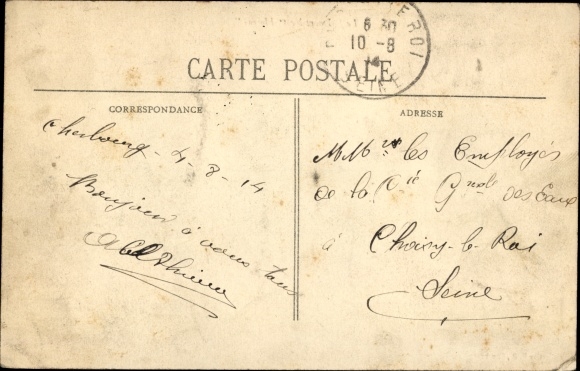 LE ROI
6 30
10 - 8
14
SEINE
CARTE POSTALE
CORRESPONDANCE
ADRESSE
Cherbourg - 4 - 8 - 14
Bonjour à vous tous
MMrs les Employés
de la Cie Gnale des Eaux
à Choisy-le-Roi
Seine